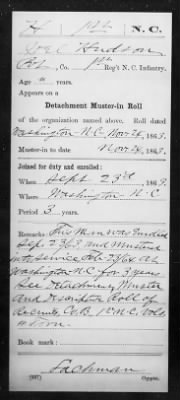 H 1st N.C.
Hudson
Pt, Co. 1st Reg't N.C. Infantry.
Age years.
Appears on a
Detachment Muster-in Roll
of the organization named above. Roll dated
Washington N.C. Nov 24, 1863.
Muster-in to date Nov 24, 1863.
Joined for duty and enrolled:
When Sept 23d, 1863.
Where Washington N.C.
Period 3 years.
Remarks: This man was Enrolled
Sep. 23/63 and Mustered
into service at
Washington N.C. for 3 years
See Detachment Muster
and Descriptive Roll of
Recruits Co. B 1st N.C. Vols
Book mark:
(337) Copyist.